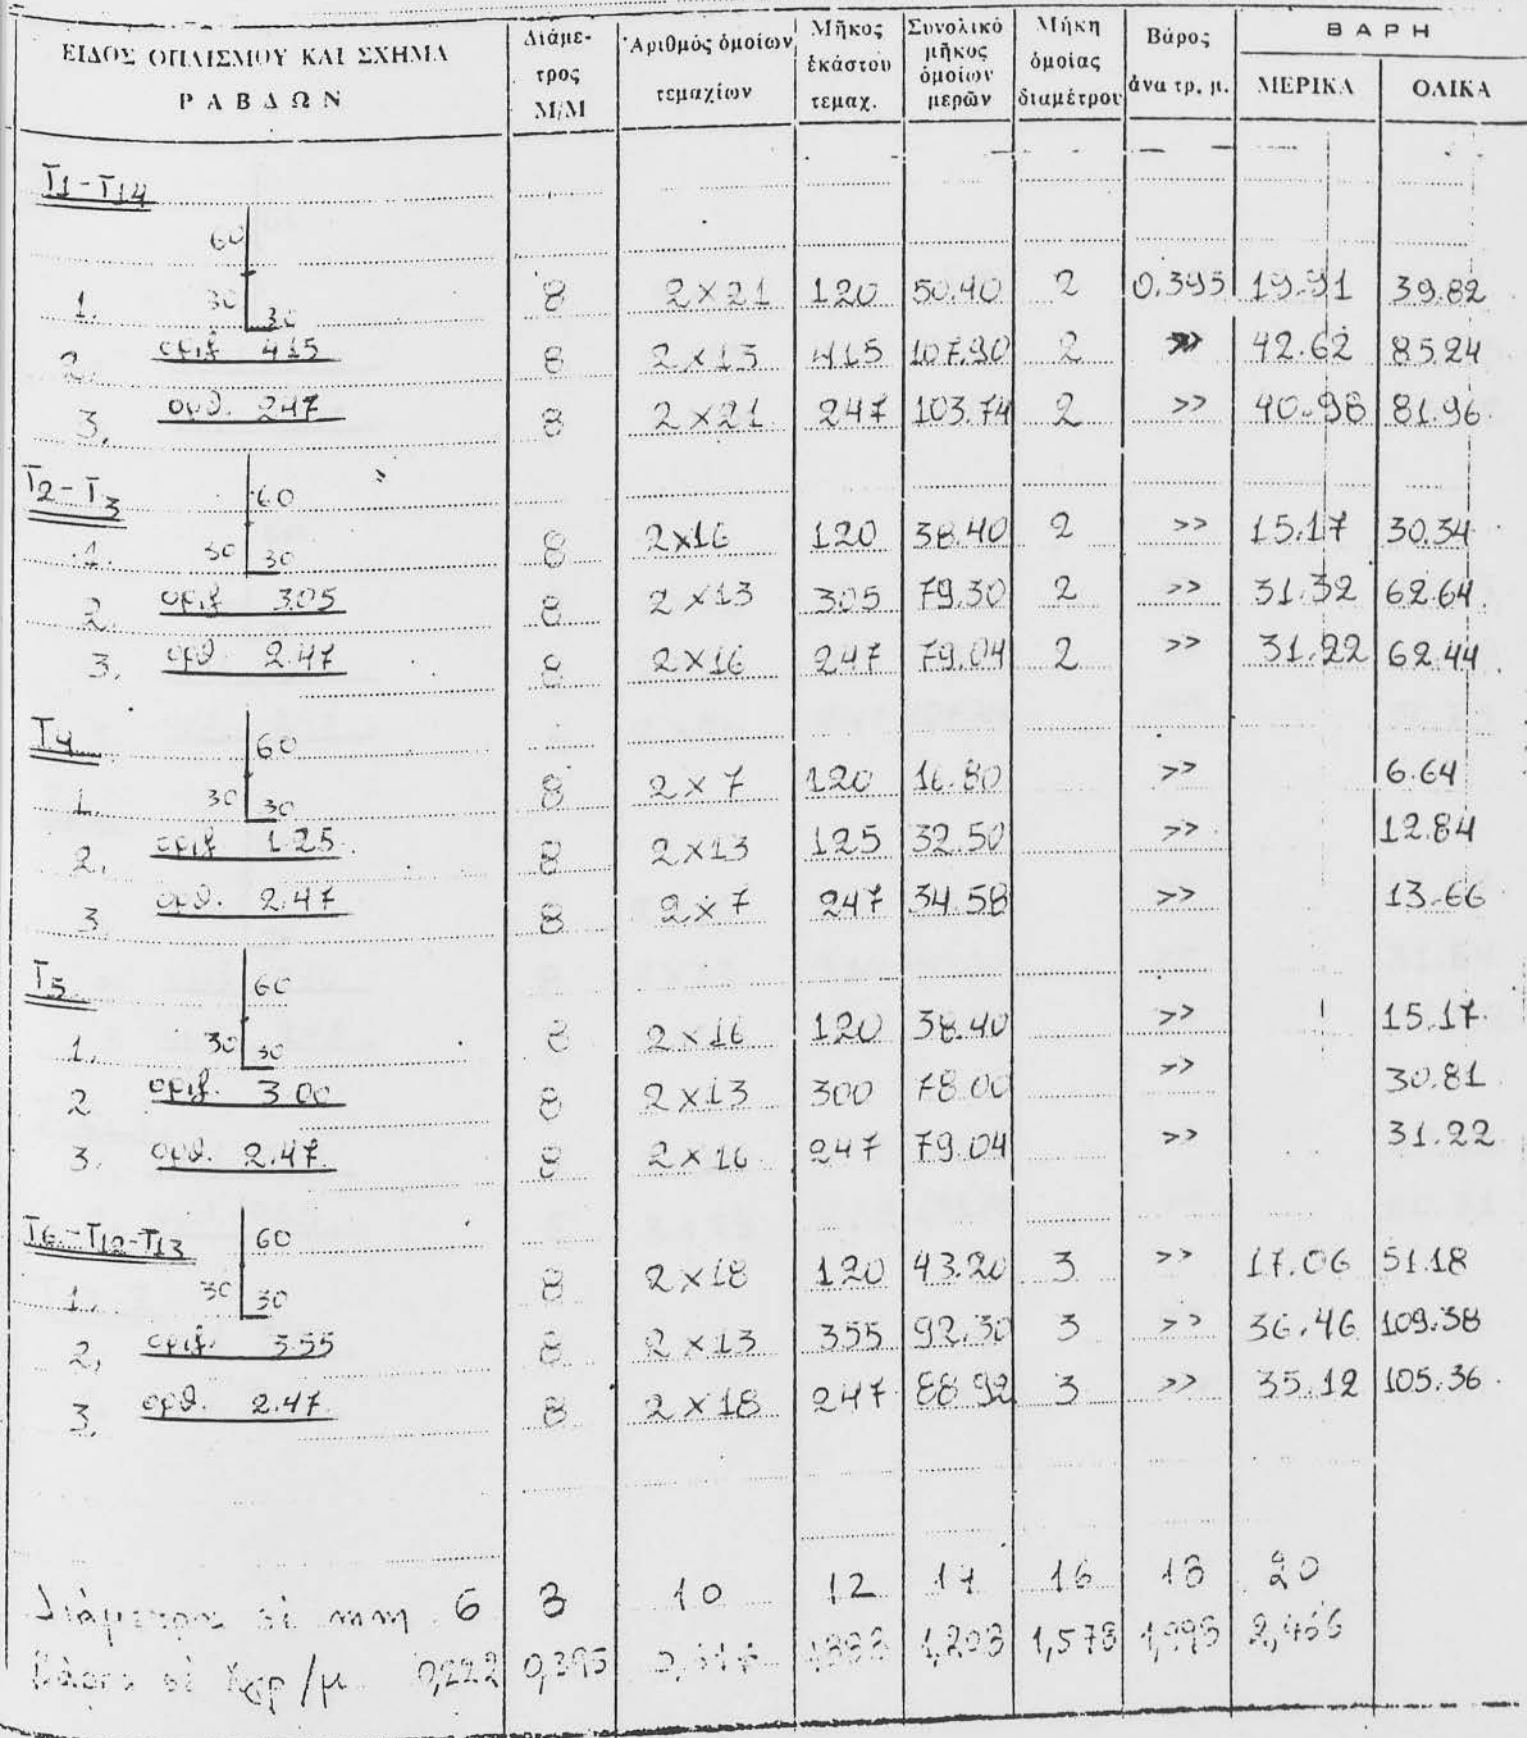 ΕΙΔΟΣ ΟΠΛΙΣΜΟΥ ΚΑΙ ΣΧΗΜΑ ΡΑΒΔΩΝ | Διάμε-τρος Μ/Μ | Ἀριθμός ὁμοίων τεμαχίων | Μῆκος ἑκάστου τεμαχ. | Συνολικό μῆκος ὁμοίων μερῶν | Μήκη ὁμοίας διαμέτρου | Βάρος ἀνα τρ. μ. | ΒΑΡΗ ΜΕΡΙΚΑ | ΟΛΙΚΑ
Τ1-Τ14
60
1. 30 30 8 2×21 120 50.40 2 0.395 19.91 39.82
2. οριζ 415 8 2×13 415 107.90 2 >> 42.62 85.24
3. ορθ. 247 8 2×21 247 103.74 2 >> 40.98 81.96
Τ2-Τ3 60
1. 30 30 8 2×16 120 38.40 2 >> 15.17 30.34
2. οριζ 305 8 2×13 305 79.30 2 >> 31.32 62.64
3. ορθ 2.47 8 2×16 247 79.04 2 >> 31.22 62.44
Τ4 60
1. 30 30 8 2×7 120 16.80 >> 6.64
2. οριζ 1.25 8 2×13 125 32.50 >> 12.84
3. ορθ. 2.47 8 2×7 247 34.58 >> 13.66
Τ5 60
1. 30 30 8 2×16 120 38.40 >> 15.17
2 οριζ. 3.00 8 2×13 300 78.00 >> 30.81
3. ορθ. 2.47 8 2×16 247 79.04 >> 31.22
Τ6-Τ12-Τ13 60
1. 30 30 8 2×18 120 43.20 3 >> 17.06 51.18
2. οριζ. 3.55 8 2×13 355 92.30 3 >> 36.46 109.38
3. ορθ. 2.47 8 2×18 247 88.92 3 >> 35.12 105.36
σέ mm 6 8 10 12 14 16 18 20
σέ /μ 0,222 0,395 1,208 1,578 1,998 2,466